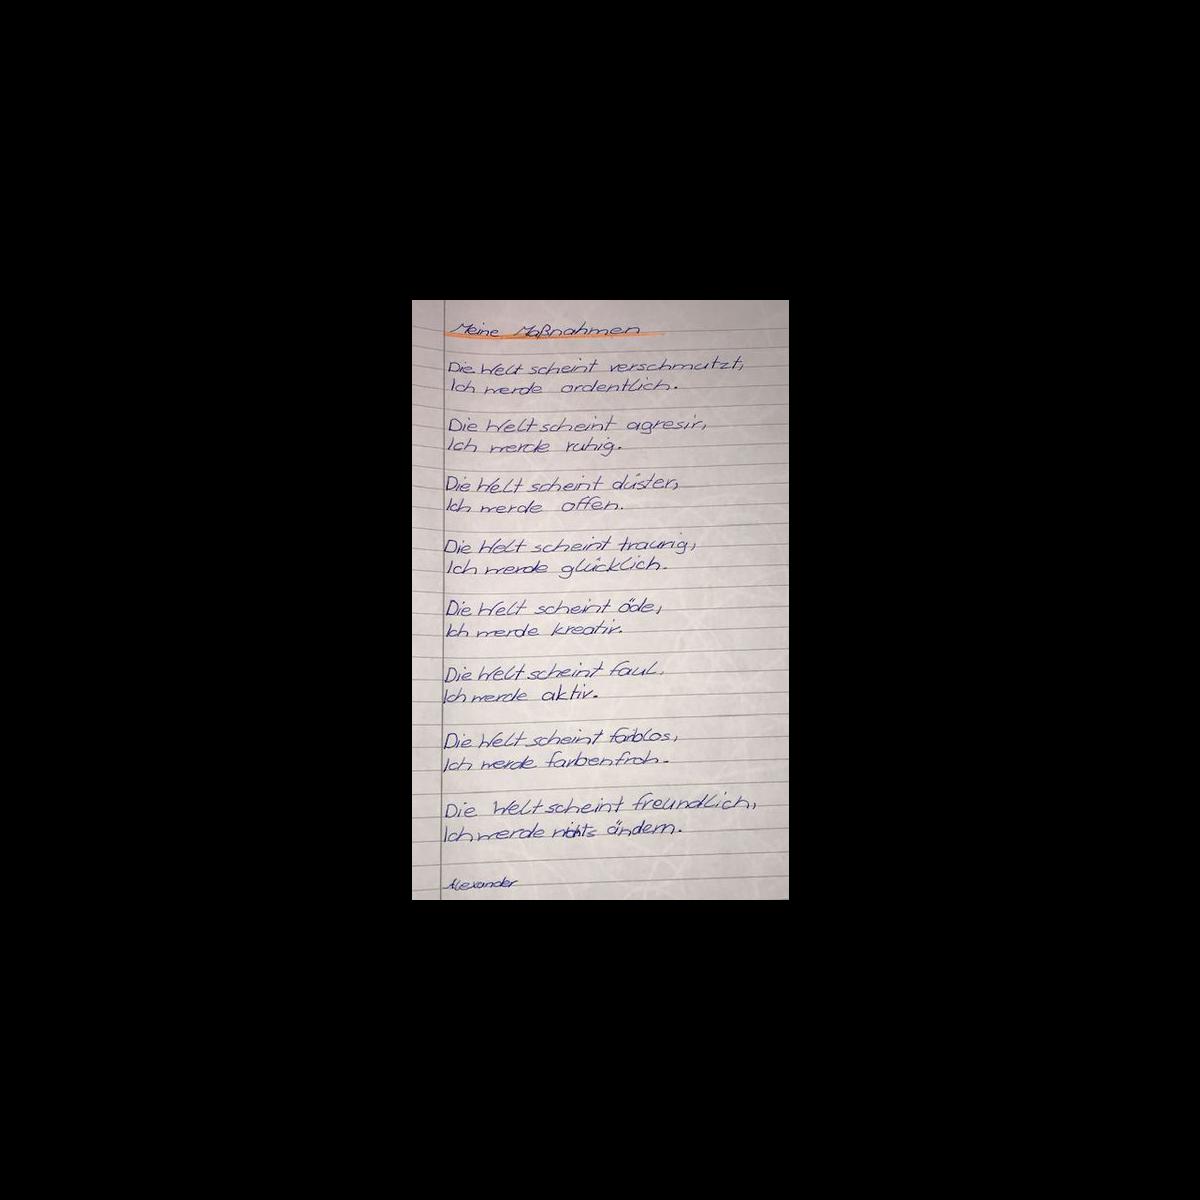 Meine Maßnahmen
Die Welt scheint verschmutzt,
Ich werde ordentlich.
Die Welt scheint agresiv,
Ich werde ruhig.
Die Welt scheint düster,
Ich werde offen.
Die Welt scheint traurig,
Ich werde glücklich.
Die Welt scheint öde,
Ich werde kreativ.
Die Welt scheint faul,
Ich werde aktiv.
Die Welt scheint farblos,
Ich werde farbenfroh.
Die Welt scheint freundlich,
Ich werde nichts ändern.
Alexander